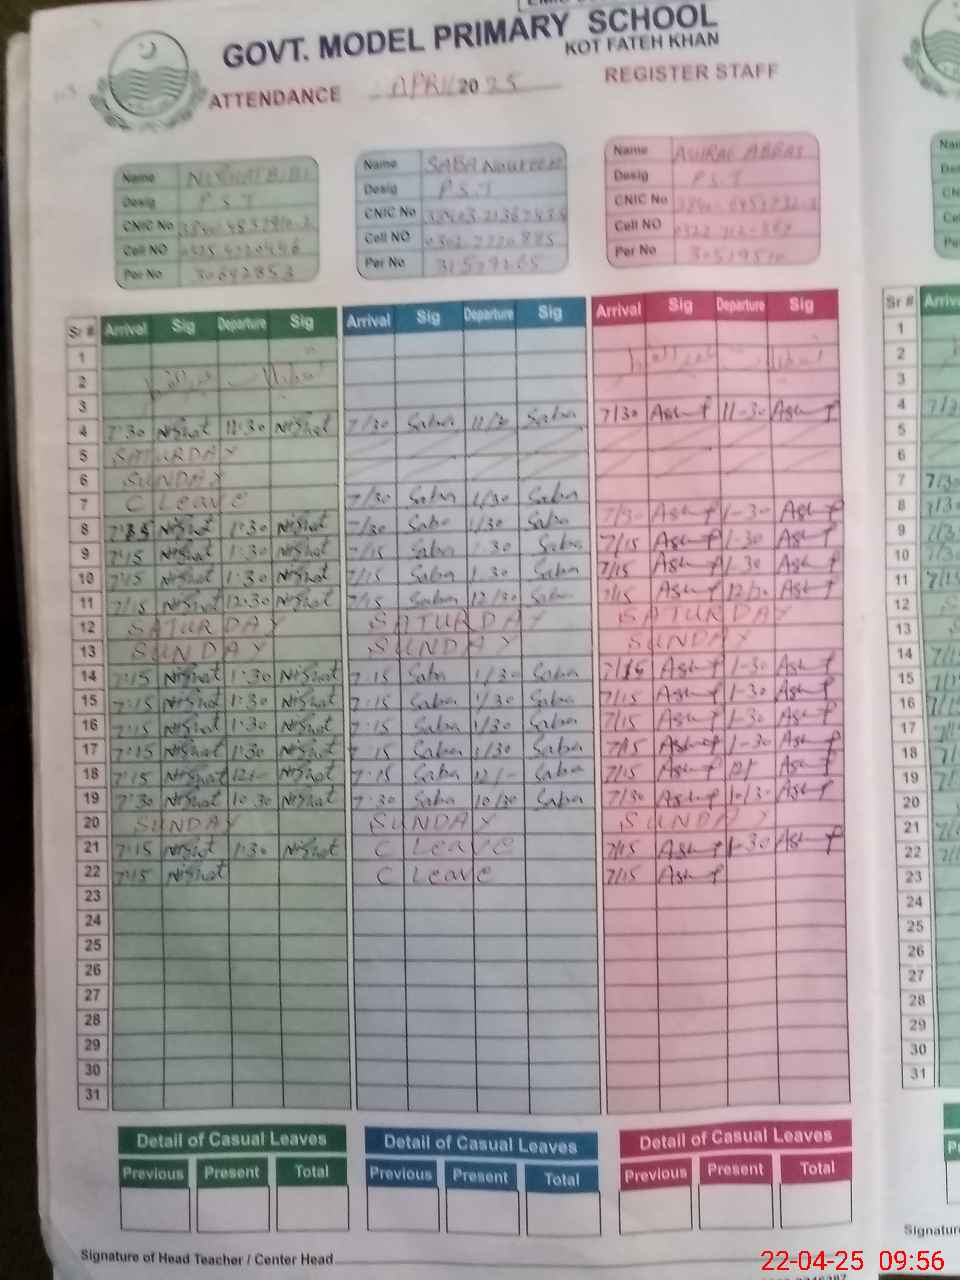 GOVT. MODEL PRIMARY SCHOOL
KOT FATEH KHAN
ATTENDANCE APRIL 2025 REGISTER STAFF
Name NISHAT BIBI Name SABA Noureen Name ASHRAF ABBAS
Desig P.S.T Desig P.S.T Desig P.S.T
CNIC No CNIC No CNIC No
Cell NO Cell NO Cell NO
Per No 30642853 Per No Per No
Sr # Arrival Sig Departure Sig Arrival Sig Departure Sig Arrival Sig Departure Sig Sr #
1 1
2 2
3 3
4 7:30 Nishat 11:30 Nishat 7/30 Saba 11/30 Saba 7/30 Ashraf 11-30 Ashraf 4
5 SATURDAY 5
6 SUNDAY 6
7 C Leave 7/30 Saba 1/30 Saba 7
8 Nishat 1:30 Nishat 7/30 Saba 1/30 Saba 7/30 Ashraf 1-30 Ashraf 8
9 7:15 Nishat 1:30 Nishat 7/15 Saba 1.30 Saba 7/15 Ashraf 1-30 Ashraf 9
10 7:15 Nishat 1:30 Nishat 7/15 Saba 1.30 Saba 7/15 Ashraf 1-30 Ashraf 10
11 7/15 Nishat 12:30 Nishat 7/15 Saba 12/30 Saba 7/15 Ashraf 12/30 Ashraf 11
12 SATURDAY SATURDAY SATURDAY 12
13 SUNDAY SUNDAY SUNDAY 13
14 7:15 Nishat 1:30 Nishat 7:15 Saba 1/30 Saba 7/15 Ashraf 1-30 Ashraf 14
15 7:15 Nishat 1:30 Nishat 7:15 Saba 1/30 Saba 7/15 Ashraf 1-30 Ashraf 15
16 7:15 Nishat 1:30 Nishat 7:15 Saba 1/30 Saba 7/15 Ashraf 1-30 Ashraf 16
17 7:15 Nishat 1:30 Nishat 7:15 Saba 1/30 Saba 7/15 Ashraf 1-30 Ashraf 17
18 7:15 Nishat 12:- Nishat 7:15 Saba 12/- Saba 7/15 Ashraf 12/ Ashraf 18
19 7:30 Nishat 10:30 Nishat 7:30 Saba 10/30 Saba 7/30 Ashraf 10/30 Ashraf 19
20 SUNDAY SUNDAY SUNDAY 20
21 7:15 Nishat 1:30 Nishat C Leave 7/15 Ashraf 1-30 Ashraf 21
22 7:15 Nishat C Leave 7/15 Ashraf 22
23 23
24 24
25 25
26 26
27 27
28 28
29 29
30 30
31 31
Detail of Casual Leaves Detail of Casual Leaves Detail of Casual Leaves
Previous Present Total Previous Present Total Previous Present Total
Signature of Head Teacher / Center Head
22-04-25 09:56